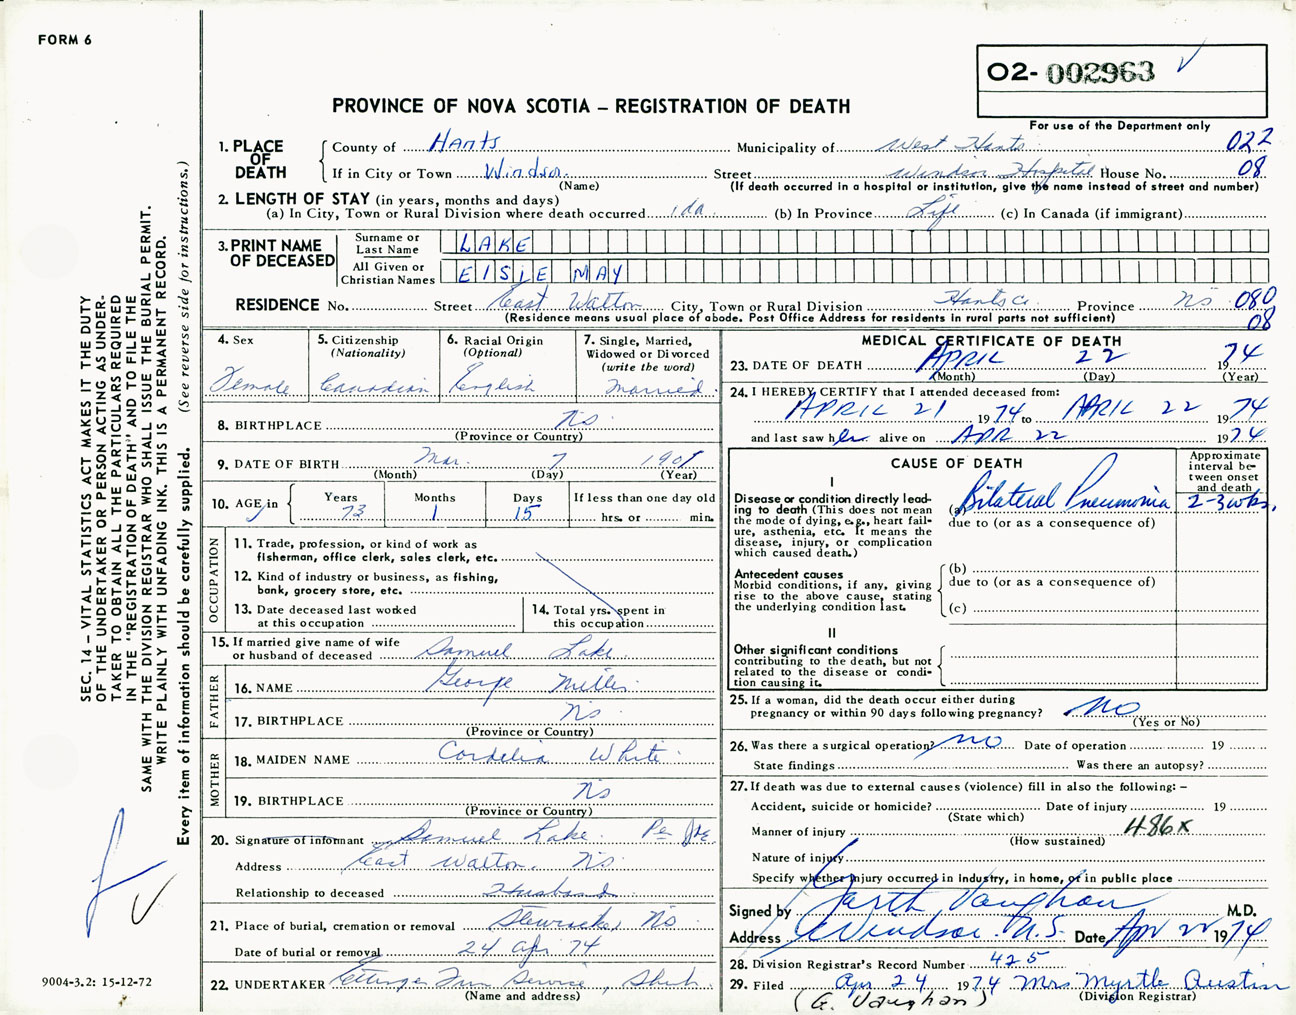 FORM 6
O2- 002963
PROVINCE OF NOVA SCOTIA – REGISTRATION OF DEATH
For use of the Department only
1. PLACE OF DEATH
County of Hants Municipality of West Hants 022
If in City or Town Windsor Street Windsor Hospital House No. 08
(Name) (If death occurred in a hospital or institution, give the name instead of street and number)
2. LENGTH OF STAY (in years, months and days)
(a) In City, Town or Rural Division where death occurred 1 da. (b) In Province Life (c) In Canada (if immigrant)
3. PRINT NAME OF DECEASED
Surname or Last Name LAKE
All Given or Christian Names ElSiE MAY
RESIDENCE No. Street East Walton City, Town or Rural Division Hants Co. Province NS 080
(Residence means usual place of abode. Post Office Address for residents in rural parts not sufficient) 08
4. Sex Female
5. Citizenship (Nationality) Canadian
6. Racial Origin (Optional) English
7. Single, Married, Widowed or Divorced (write the word) Married
8. BIRTHPLACE NS
(Province or Country)
9. DATE OF BIRTH Mar. 7 1901
(Month) (Day) (Year)
10. AGE in Years 73 Months 1 Days 15 If less than one day old hrs. or min.
OCCUPATION
11. Trade, profession, or kind of work as fisherman, office clerk, sales clerk, etc.
12. Kind of industry or business, as fishing, bank, grocery store, etc.
13. Date deceased last worked at this occupation
14. Total yrs. spent in this occupation
15. If married give name of wife or husband of deceased Samuel Lake
FATHER
16. NAME George Miller
17. BIRTHPLACE NS
(Province or Country)
MOTHER
18. MAIDEN NAME Cordelia White
19. BIRTHPLACE NS
(Province or Country)
20. Signature of informant Samuel Lake Per
Address East Walton, NS
Relationship to deceased Husband
21. Place of burial, cremation or removal NS
Date of burial or removal 24 Apr. 74
22. UNDERTAKER
(Name and address)
MEDICAL CERTIFICATE OF DEATH
23. DATE OF DEATH APRIL 22 1974
(Month) (Day) (Year)
24. I HEREBY CERTIFY that I attended deceased from:
APRIL 21 1974 to APRIL 22 1974
and last saw her alive on APR 22 1974
CAUSE OF DEATH
Approximate interval between onset and death
I
Disease or condition directly leading to death (This does not mean the mode of dying, e.g., heart failure, asthenia, etc. It means the disease, injury, or complication which caused death.)
(a) Bilateral Pneumonia 2-3 wks.
due to (or as a consequence of)
Antecedent causes
Morbid conditions, if any, giving rise to the above cause, stating the underlying condition last.
(b)
due to (or as a consequence of)
(c)
II
Other significant conditions
contributing to the death, but not related to the disease or condition causing it.
25. If a woman, did the death occur either during pregnancy or within 90 days following pregnancy? NO
(Yes or No)
26. Was there a surgical operation? no Date of operation 19
State findings Was there an autopsy?
27. If death was due to external causes (violence) fill in also the following: –
Accident, suicide or homicide? Date of injury 19
(State which)
Manner of injury 486x
(How sustained)
Nature of injury
Specify whether injury occurred in industry, in home, or in public place
Signed by Garth Vaughan M.D.
Address Windsor N.S. Date Apr 22 1974
28. Division Registrar's Record Number 425
29. Filed Apr 24 1974 Mrs Myrtle Austin
(Division Registrar)
(G. Vaughan)
SEC. 14 – VITAL STATISTICS ACT MAKES IT THE DUTY
OF THE UNDERTAKER OR PERSON ACTING AS UNDER-
TAKER TO OBTAIN ALL THE PARTICULARS REQUIRED
IN THE "REGISTRATION OF DEATH" AND TO FILE THE
SAME WITH THE DIVISION REGISTRAR WHO SHALL ISSUE THE BURIAL PERMIT.
WRITE PLAINLY WITH UNFADING INK. THIS IS A PERMANENT RECORD.
Every item of information should be carefully supplied. (See reverse side for instructions.)
9004-3.2: 15-12-72